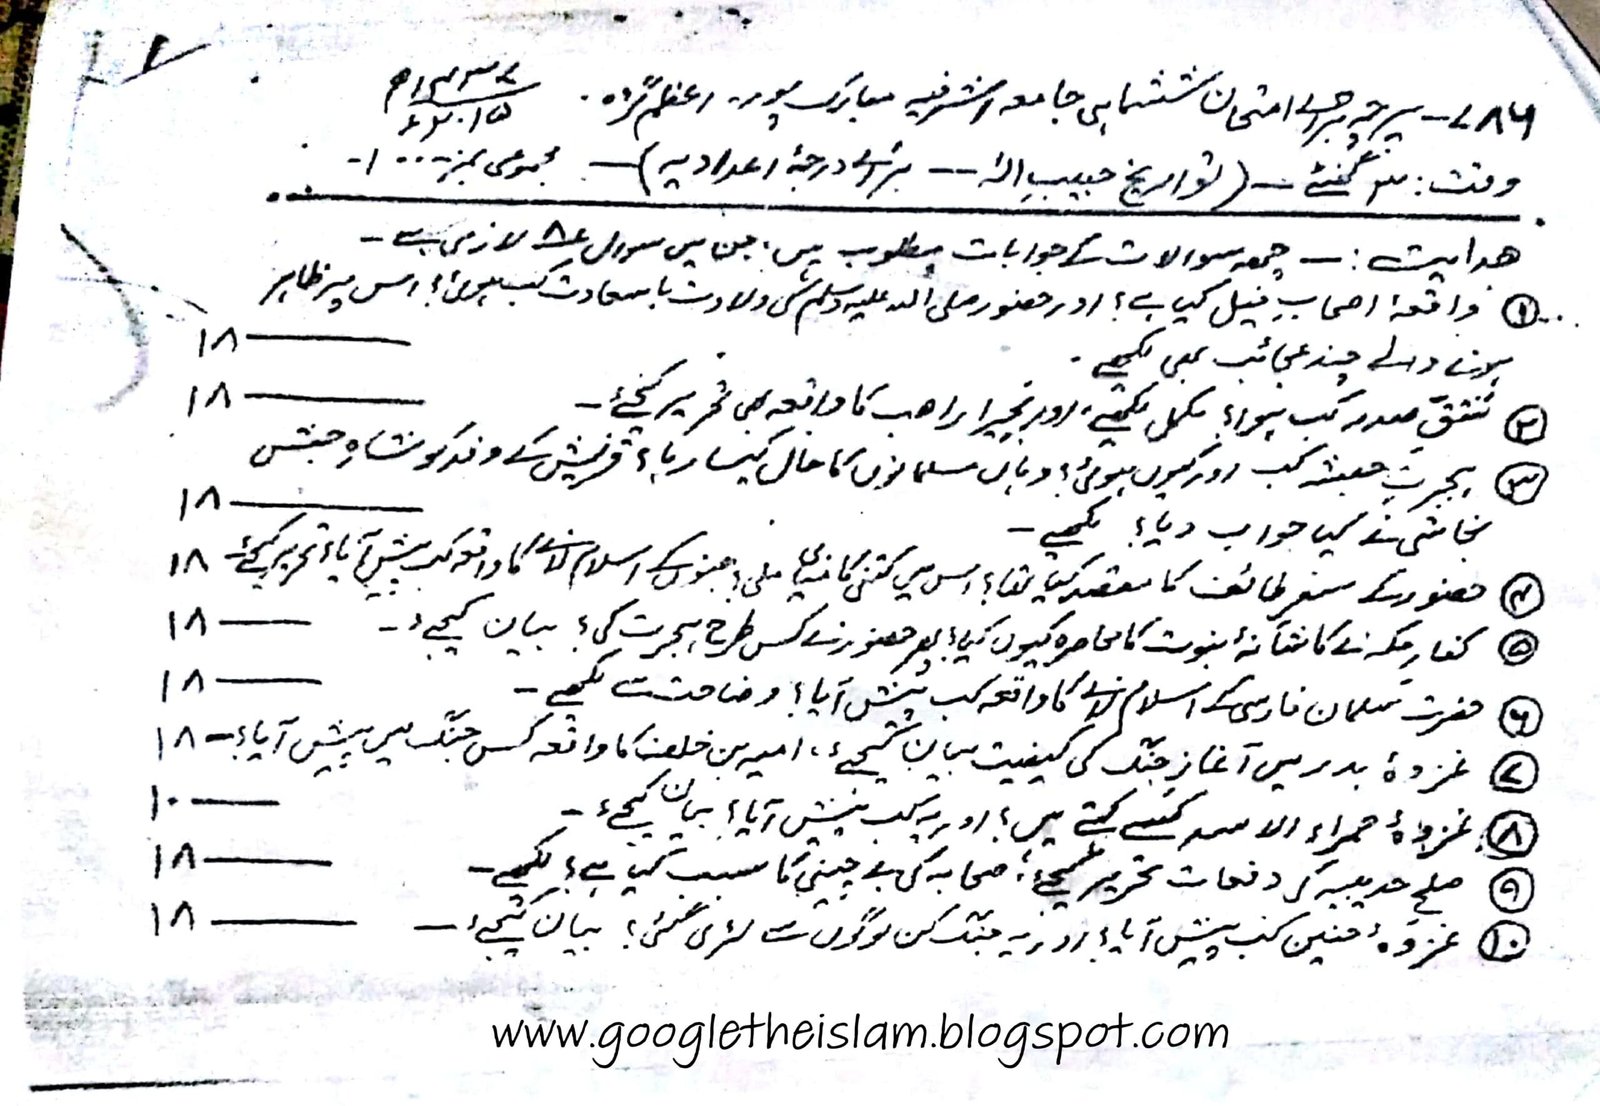 ۷۸۶ — پرچہ برائے امتحان ششماہی جامعہ اشرفیہ مبارک پور، اعظم گڑھ۔ ۱۴۳۶ھ ۲۰۱۵ء
وقت: ۳ گھنٹے — (تواریخ حبیبِ الٰہ — برائے درجۂ اعدادیہ) — مجموعی نمبر ۱۰۰-
ھدایت :— چھ سوالات کے جوابات مطلوب ہیں، جن میں سوال ۸ لازمی ہے —
۱ واقعۂ اصحابِ فیل کیا ہے؟ اور حضور صلی اللہ علیہ وسلم کی ولادت باسعادت کب ہوئی؟ اس پر ظاہر
ہونے والے چند عجائب بھی لکھیے۔ ۱۸
۲ شقِّ صدر کب ہوا؟ مکمل لکھیے، اور بحیرا راھب کا واقعہ بھی تحریر کیجئے — ۱۸
۳ ہجرتِ حبشہ کب اور کیوں ہوئی؟ وہاں مسلمانوں کا حال کیسا رہا؟ قریش کے وفد کو شاہِ حبش
نجاشی نے کیا جواب دیا؟ لکھیے — ۱۸
۴ حضور کے سفرِ طائف کا مقصد کیا تھا؟ اس میں کتنی کامیابی ملی؟ جنوں کے اسلام لانے کا واقعہ کب پیش آیا؟ تحریر کیجئے- ۱۸
۵ کفارِ مکہ نے کاشانۂ نبوت کا محاصرہ کیوں کیا؟ پھر حضور نے کس طرح ہجرت کی؟ بیان کیجیے- ۱۸
۶ حضرت سلمان فارسی کے اسلام لانے کا واقعہ کب پیش آیا؟ وضاحت سے لکھیے — ۱۸
۷ غزوۂ بدر میں آغازِ جنگ کی کیفیت بیان کیجیے، امیہ بن خلف کا واقعہ کس جنگ میں پیش آیا؟- ۱۸
۸ غزوۂ حمراء الاسد کسے کہتے ہیں؟ اور یہ کب پیش آیا؟ بیان کیجیے- ۱۰
۹ صلح حدیبیہ کی دفعات تحریر کیجیے، صحابہ کی بے چینی کا سبب کیا ہے؟ لکھیے — ۱۸
۱۰ غزوۂ حنین کب پیش آیا؟ اور یہ جنگ کن لوگوں سے لڑی گئی؟ بیان کیجیے — ۱۸
www.googletheislam.blogspot.com